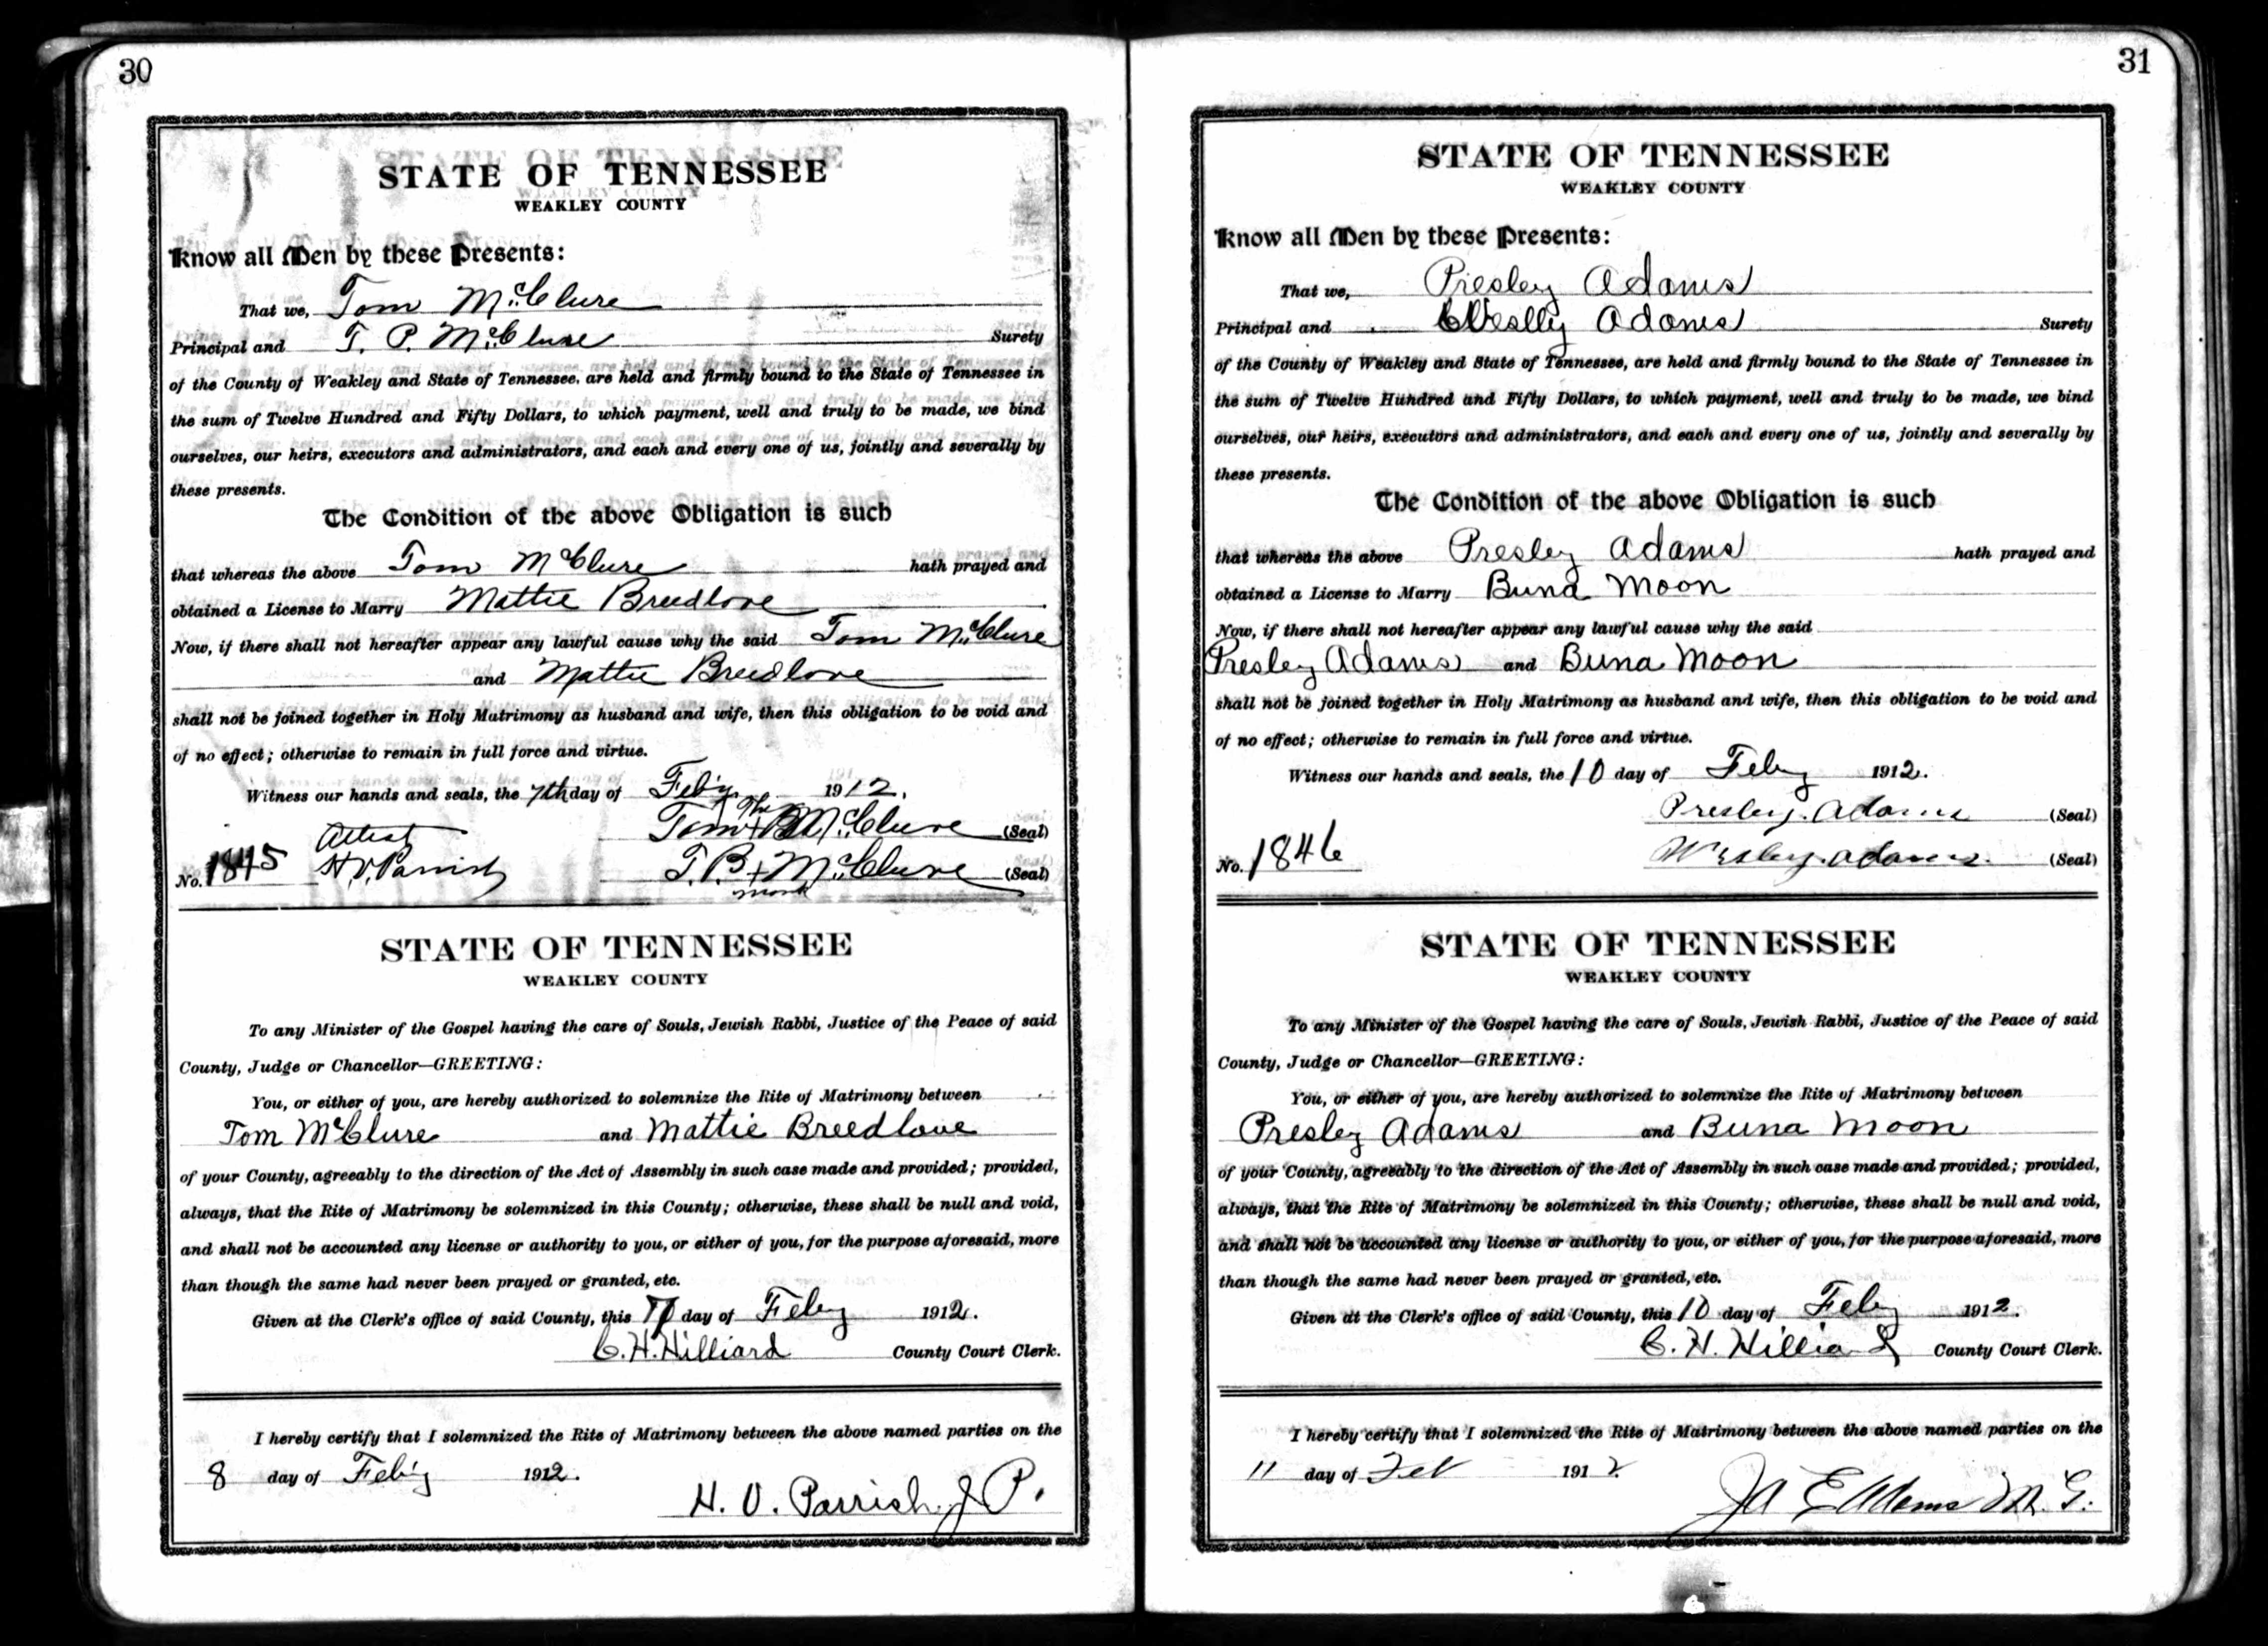 30
STATE OF TENNESSEE
WEAKLEY COUNTY
Know all Men by these Presents:
That we, Tom McClure
Principal and T. P. McClure Surety
of the County of Weakley and State of Tennessee, are held and firmly bound to the State of Tennessee in
the sum of Twelve Hundred and Fifty Dollars, to which payment, well and truly to be made, we bind
ourselves, our heirs, executors and administrators, and each and every one of us, jointly and severally by
these presents.
The Condition of the above Obligation is such
that whereas the above Tom McClure hath prayed and
obtained a License to Marry Mattie Breedlove
Now, if there shall not hereafter appear any lawful cause why the said Tom McClure
and Mattie Breedlove
shall not be joined together in Holy Matrimony as husband and wife, then this obligation to be void and
of no effect; otherwise to remain in full force and virtue.
Witness our hands and seals, the 7th day of Feby 1912.
Attest Tom McClure (Seal)
No. 1845 H.V. Parrish T. B. + McClure (Seal)
mark
STATE OF TENNESSEE
WEAKLEY COUNTY
To any Minister of the Gospel having the care of Souls, Jewish Rabbi, Justice of the Peace of said
County, Judge or Chancellor—GREETING:
You, or either of you, are hereby authorized to solemnize the Rite of Matrimony between
Tom McClure and Mattie Breedlove
of your County, agreeably to the direction of the Act of Assembly in such case made and provided; provided,
always, that the Rite of Matrimony be solemnized in this County; otherwise, these shall be null and void,
and shall not be accounted any license or authority to you, or either of you, for the purpose aforesaid, more
than though the same had never been prayed or granted, etc.
Given at the Clerk's office of said County, this 7 day of Feby 1912.
C. H. Hilliard County Court Clerk.
I hereby certify that I solemnized the Rite of Matrimony between the above named parties on the
8 day of Feby 1912.
H. V. Parrish J P.
31
STATE OF TENNESSEE
WEAKLEY COUNTY
Know all Men by these Presents:
That we, Presley Adams
Principal andWeslly Adams Surety
of the County of Weakley and State of Tennessee, are held and firmly bound to the State of Tennessee in
the sum of Twelve Hundred and Fifty Dollars, to which payment, well and truly to be made, we bind
ourselves, our heirs, executors and administrators, and each and every one of us, jointly and severally by
these presents.
The Condition of the above Obligation is such
that whereas the above Presley Adams hath prayed and
obtained a License to Marry Buna Moon
Now, if there shall not hereafter appear any lawful cause why the said
Presley Adams and Buna Moon
shall not be joined together in Holy Matrimony as husband and wife, then this obligation to be void and
of no effect; otherwise to remain in full force and virtue.
Witness our hands and seals, the 10 day of Feby 1912.
Presley. Adams (Seal)
No. 1846 Wesley. Adams. (Seal)
STATE OF TENNESSEE
WEAKLEY COUNTY
To any Minister of the Gospel having the care of Souls, Jewish Rabbi, Justice of the Peace of said
County, Judge or Chancellor—GREETING:
You, or either of you, are hereby authorized to solemnize the Rite of Matrimony between
Presley Adams and Buna Moon
of your County, agreeably to the direction of the Act of Assembly in such case made and provided; provided,
always, that the Rite of Matrimony be solemnized in this County; otherwise, these shall be null and void,
and shall not be accounted any license or authority to you, or either of you, for the purpose aforesaid, more
than though the same had never been prayed or granted, etc.
Given at the Clerk's office of said County, this 10 day of Feby 1912.
C. H. Hilliard County Court Clerk.
I hereby certify that I solemnized the Rite of Matrimony between the above named parties on the
11 day of Feb 1912
E Adams M. G.